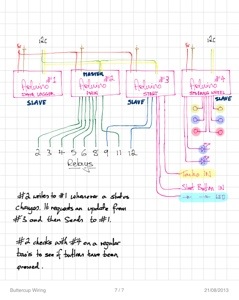 I2C
I2C
Arduino #1
DATA LOGGER
SLAVE
MASTER
Arduino #2
MAIN
Arduino #3
START
SLAVE
Arduino #4
STEERING WHEEL
SLAVE
2 3 4 5 6 8 9 11 12
Relays
Tacho IN
Start Button IN
LED
#2 writes to #1 whenever a status
changes. It requests an update from
#3 and then sends to #1.
#2 checks with #4 on a regular
basis to see if buttons have been
pressed.
Buttercup Wiring
7 / 7
21/08/2013